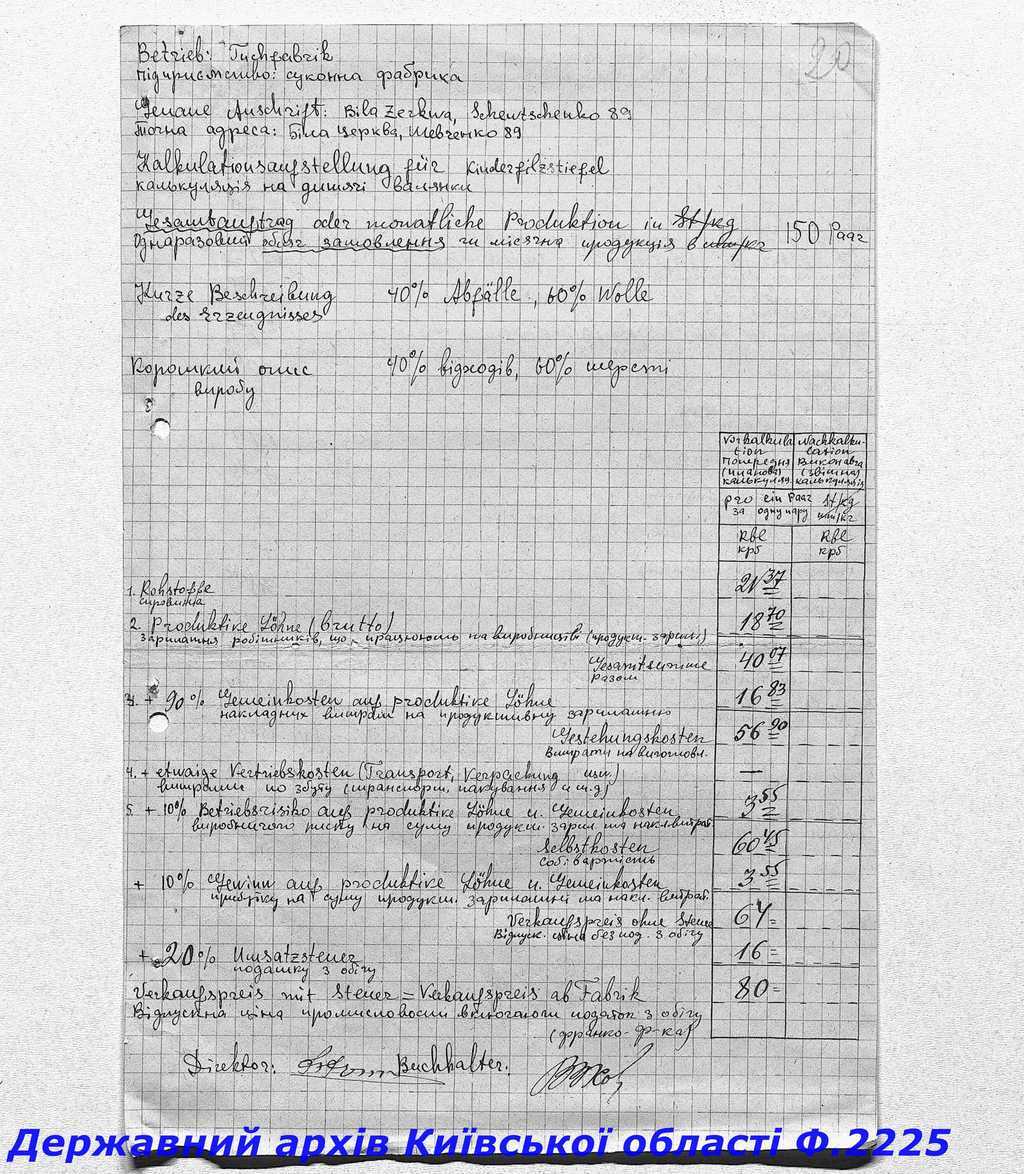 20
Betrieb: Tuchfabrik
Підприємство: суконна фабрика
Genaue Anschrift: Bila Zerkwa, Schewtschenko 89
Точна адреса: Біла Церква, Шевченко 89
Kalkulationsaufstellung für Kinderfilzstiefel
калькуляція на дитячі валянки
Gesamtauftrag oder monatliche Produktion in St/kg 150 Paar
Одноразовий обсяг замовлення чи місячна продукція в шт/кг
Kurze Beschreibung 40% Abfälle, 60% Wolle
des Erzeugnisses
Короткий опис 40% відходів, 60% шерсті
виробу
Vorkalkula Nachkalku-
tion lation
Попередня Виконавча
(планова) (звітна)
калькуляц. калькуляція
pro ein Paar St/kg
за одну пару шт/кг
Rbl Rbl
крб крб
1. Rohstoffe 21 37
сировина
2. Produktive Löhne (brutto) 18 70
зарплатня робітників, що працюють на виробництві (продукт. зарпл)
Gesamtsumme 40 07
разом
3. + 90% Gemeinkosten auf produktive Löhne 16 83
накладних витрат на продуктивну зарплатню
Gestehungskosten 56 90
Витрати на виготовл.
4. + etwaige Vertriebskosten (Transport, Verpackung usw.) —
витрати по збуту (транспорт, пакування и т.д)
5. + 10% Betriebsrisiko auf produktive Löhne u. Gemeinkosten 3 55
виробничого риску на суму продукт. зарпл та накл. витрат
Selbstkosten 60 45
собівартість
+ 10% Gewinn auf produktive Löhne u. Gemeinkosten 3 55
прибутку на суму продукт. зарплатні та накл. витрат.
Verkaufspreis ohne Steuer 64=
Відпуск. ціна без под. з обігу
+ 20% Umsatzsteuer 16=
податку з обігу
Verkaufspreis mit Steuer = Verkaufspreis ab Fabrik 80=
Відпускна ціна промисловости включаючи податок з обігу
(франко-ф-ка)
Direktor: Buchhalter:
Державний архів Київської області Ф.2225